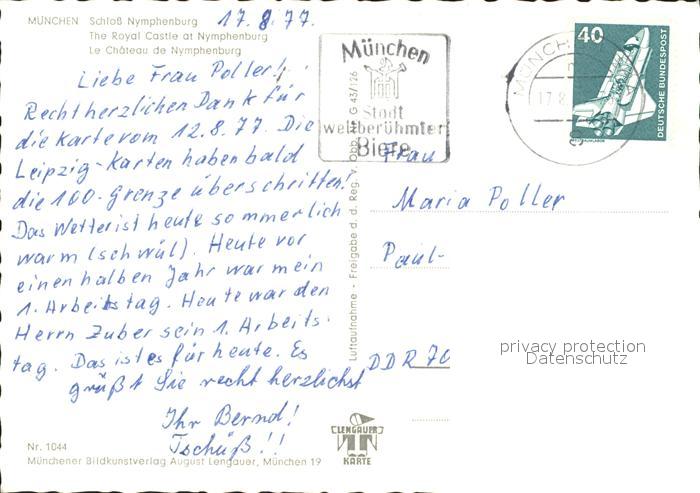 MÜNCHEN Schloß Nymphenburg
The Royal Castle at Nymphenburg
Le Château de Nymphenburg
17.8.77.
Liebe Frau Poller!
Recht herzlichen Dank für
die Karte vom 12.8.77. Die
Leipzig-Karten haben bald
die 100. Grenze überschritten!
Das Wetter ist heute sommerlich
warm (schwül). Heute vor
einen halben Jahr war mein
1. Arbeitstag. Heute war den
Herrn Zuber sein 1. Arbeits-
tag. Das ist es für heute. Es
grüßt Sie recht herzlichst
Ihr Bernd!
Tschüß!!
Nr. 1044
Münchener Bildkunstverlag August Lengauer, München 19
Luftaufnahme - Freigabe d. d. Reg. v. Obb. G 43/126
LENGAUER
KARTE
München
Stadt
weltberühmter
Biere
MÜNCH
17.8.
40
DEUTSCHE BUNDESPOST
Frau
Maria Poller
Paul-
DDR 70
privacy protection
Datenschutz